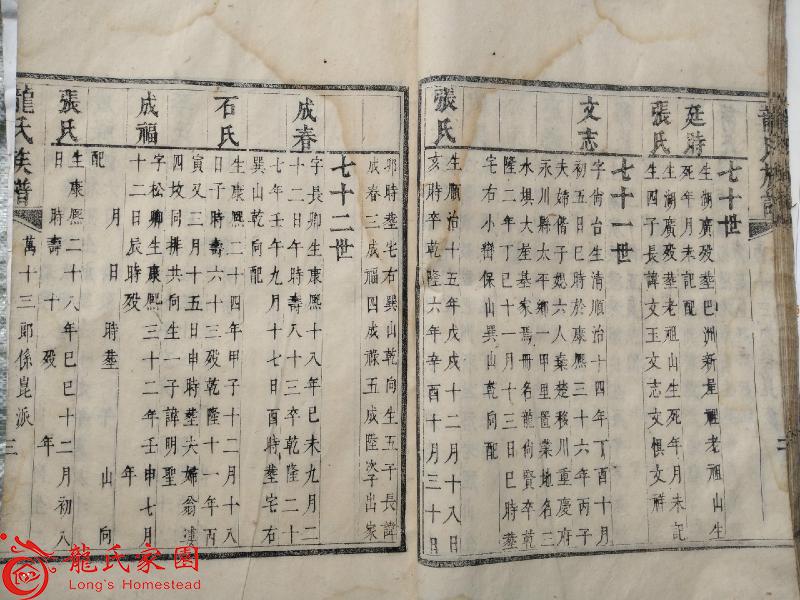 七十世
廷時
生湖廣殁塟巴洲新星
老祖山生
死年月未記配
張氏
生湖廣殁塟老祖山生死年月未記
生四子長諱文玉文志文俱文祥
七十一世
文志
字尚台生清順治十四年丁酉十月
初五日巳時於康熙三十六年丙子
夫婦偕子媳六人秦楚移川重慶府
永川縣太平鄉一甲里置業地名二
水垻大
基家焉冊名龍尚賢卒乾
隆二年丁巳十一月十三日巳時塟
宅右小
保山巽山乾向配
張氏
生順治十五年戊戌十二月十八日
亥時卒乾隆六年辛酉十月三十日
卯時塟宅右巽山乾向生五子長諱
成春三成福四成祿五成陞次子出家
七十二世
成春
字長卿生康熙十八年己未九月二
十二日午時壽八十三卒乾隆二十
七年壬午九月十七日酉時塟宅右
巽山乾向配
石氏
生康熙二十四年甲子十二月十八
日子時壽六十三殁乾隆十一年丙
寅又三月十五日申時塟夫婦翁婆
四坟同排共向生一子諱明聖
成福
字松卿生康熙三十二年壬申七月
十二日辰時殁 年
月 日 時塟 山 向
配
張氏
生康熙二十八年己巳十二月初八
日 時壽 十 殁 年
龍氏族譜
萬十三郎係崑派
三
龍氏家園
Long's Homestead